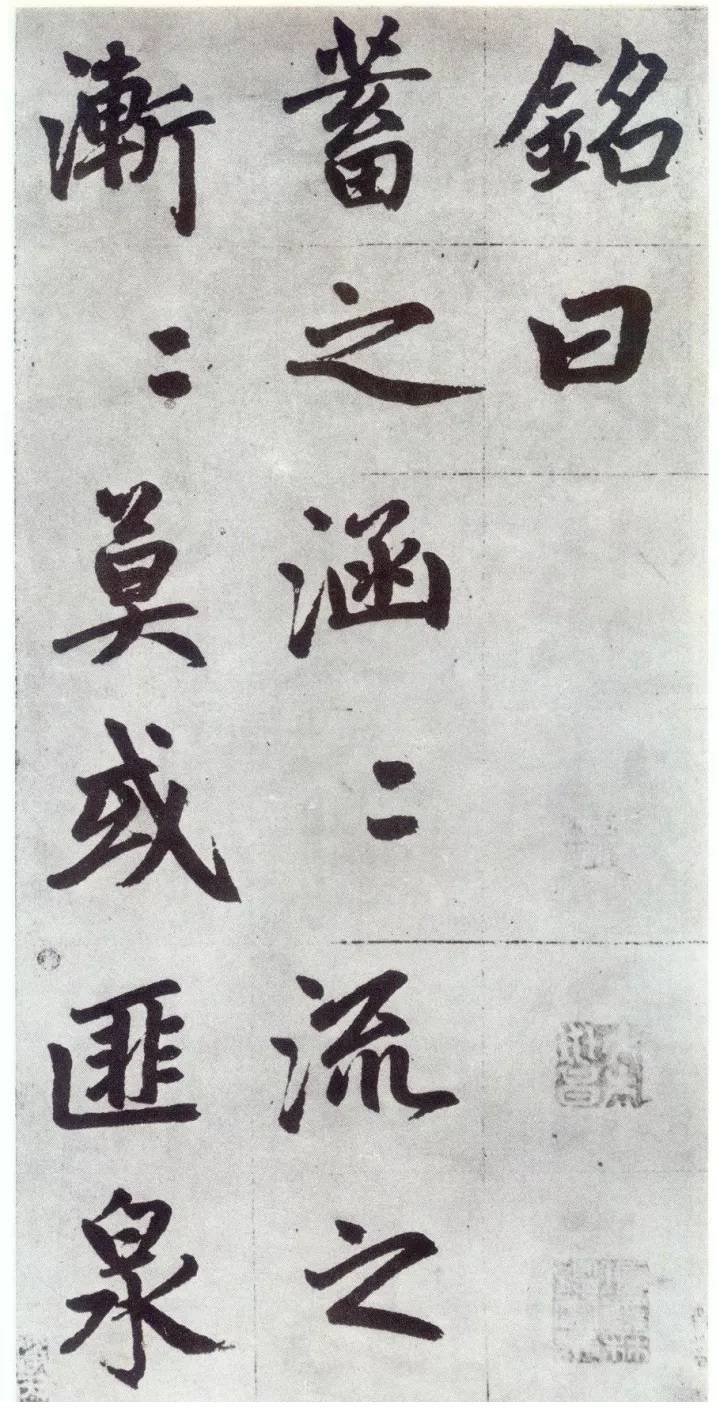 銘曰
蓄之涵〻流之
漸〻莫或匪泉